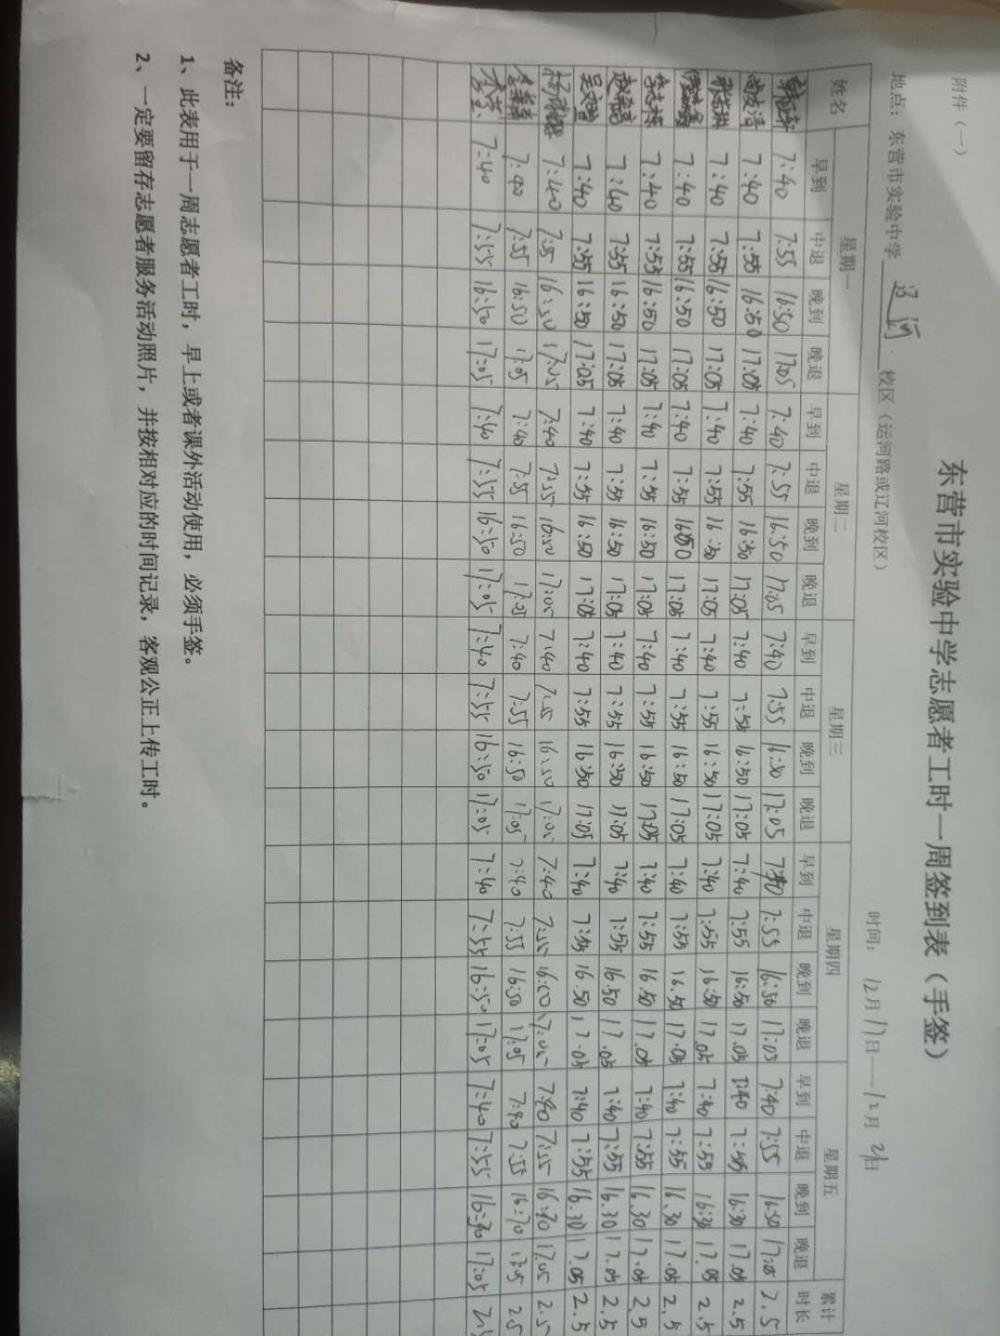 附件（一）
东营市实验中学志愿者工时一周签到表（手签）
地点：东营市实验中学 辽河 校区（运河路或辽河校区） 时间：12月17日—12月21日
姓名 星期一 星期二 星期三 星期四 星期五 累计时长
早到 中退 晚到 晚退 早到 中退 晚到 晚退 早到 中退 晚到 晚退 早到 中退 晚到 晚退 早到 中退 晚到 晚退
7:40 7:55 16:50 17:05 7:40 7:55 16:50 17:05 7:40 7:55 16:50 17:05 7:40 7:55 16:50 17:05 7:40 7:55 16:50 17:05 2.5
7:40 7:55 16:50 17:05 7:40 7:55 16:50 17:05 7:40 7:55 16:50 17:05 7:40 7:55 16:50 17.05 7:40 7:55 16:30 17.05 2.5
7:40 7:55 16:50 17:05 7:40 7:55 16:50 17:05 7:40 7:55 16:50 17:05 7:40 7:55 16:50 17.05 7:40 7:55 16:30 17.05 2.5
7:40 7:55 16:50 17:05 7:40 7:55 16:50 17:05 7:40 7:55 16:50 17:05 7:40 7:55 16.50 17.05 7:40 7:55 16.30 17.05 2.5
7:40 7:55 16:50 17:05 7:40 7:55 16:50 17:05 7:40 7:55 16:50 17:05 7:40 7:55 16.50 17.05 7:40 7:55 16.30 17.05 2.5
7:40 7:55 16:50 17:05 7:40 7:55 16:50 17:05 7:40 7:55 16:50 17:05 7:40 7:55 16.50 17.05 7:40 7:55 16.30 17.05 2.5
7:40 7:55 16:50 17:05 7:40 7:55 16:50 17:05 7:40 7:55 16:50 17:05 7:40 7:55 16.50 17.05 7:40 7:55 16.30 17.05 2.5
7:40 7:55 16:50 17:05 7:40 7:55 16:50 17:05 7:40 7:55 16:50 17:05 7:40 7:55 17:05 7:40 7:55 17:05 2.5
7:40 7:55 16:50 17:05 7:40 7:55 16:50 17:05 7:40 7:55 16:50 17:05 7:40 7:55 16:50 17:05 7:40 7:55 17:05 2.5
7:40 7:55 16:50 17:05 7:40 7:55 16:50 17:05 7:40 7:55 16:50 17:05 7:40 7:55 16:50 17:05 7:40 7:55 17:05
备注：
1、此表用于一周志愿者工时，早上或者课外活动使用，必须手签。
2、一定要留存志愿者服务活动照片，并按相对应的时间记录，客观公正上传工时。